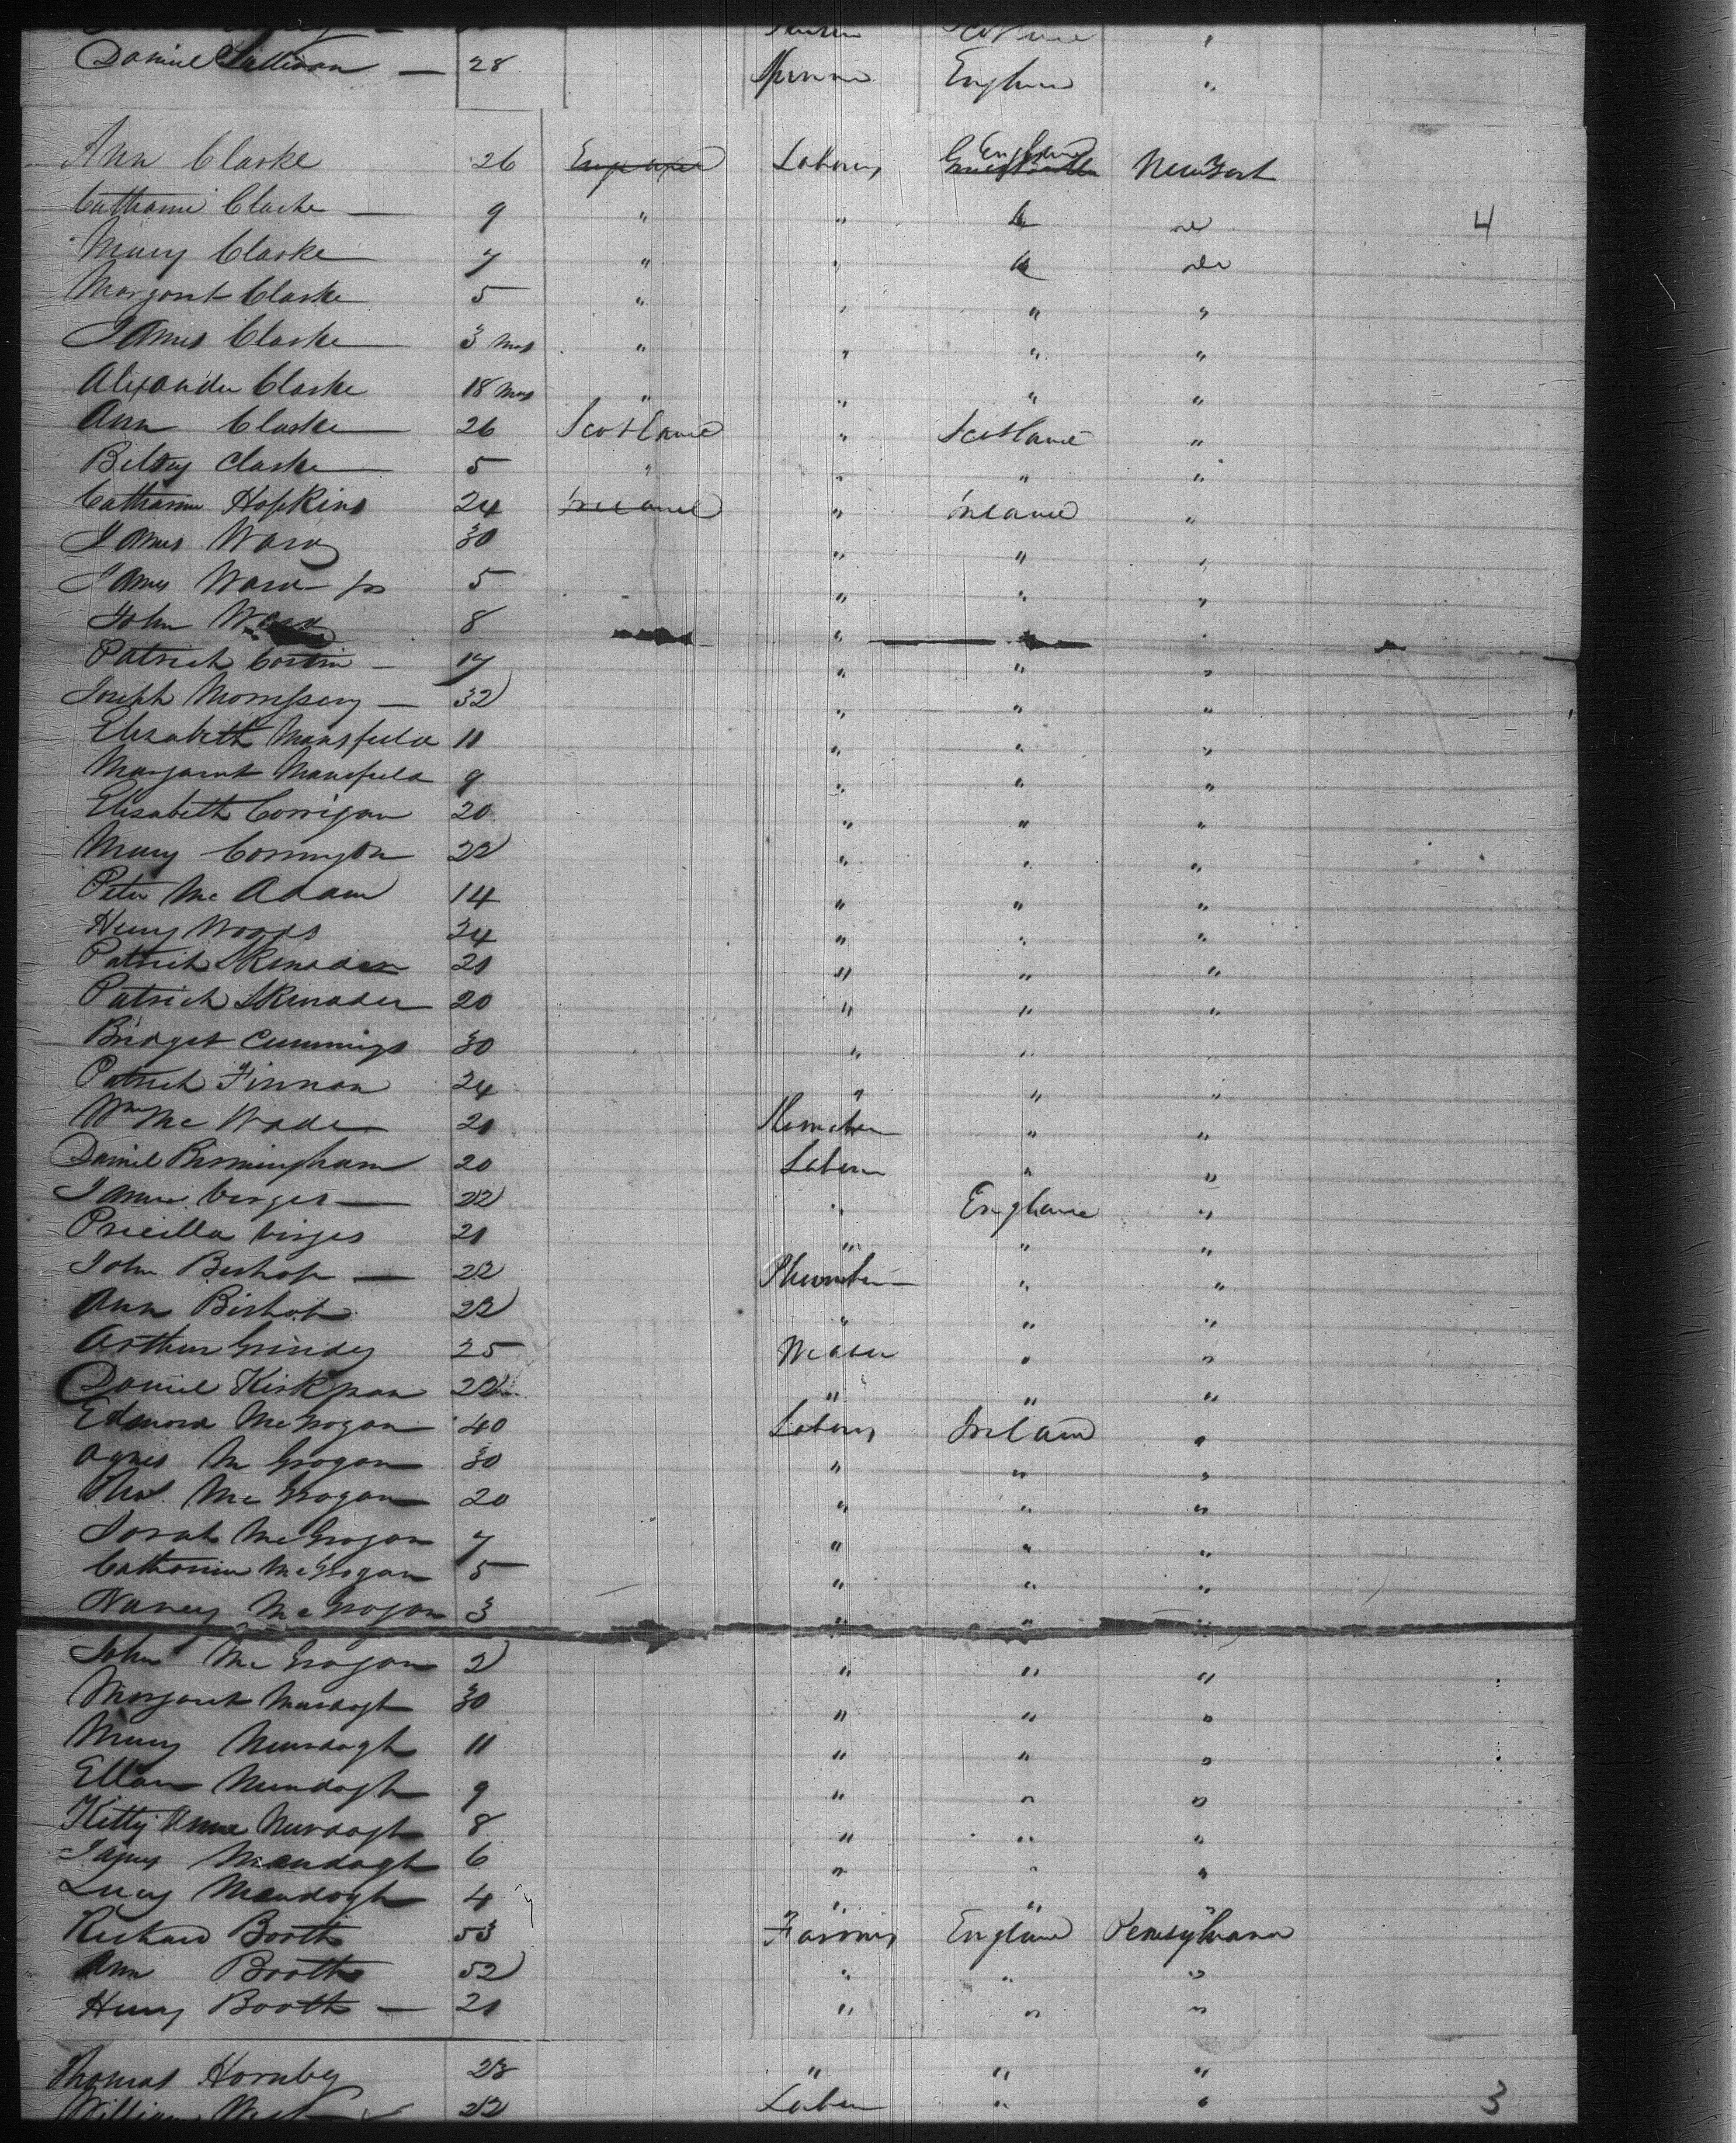 Daniel Sullivan — 28 Spinner England "
Ann Clarke 26 England Laborer England New York
Catharine Clarke — 9 " " " do 4
Mary Clarke 7 " " " do
Margaret Clarke 5 " " " "
James Clarke 3 mos " " " "
Alexander Clarke 18 mos " " " "
Ann Clarke 26 Scotland " Scotland "
Betsy Clarke 5 " " " "
Catharine Hopkins 24 Ireland " Ireland "
James Ward 30 " " "
James Ward Jr 5 " " "
John Ward 8 " " "
Patrick 17 " " "
Joseph Morrissey — 32 " " "
Elisabeth Mansfield 11 " " "
Margaret Mansfield 9 " " "
Elisabeth Corrigan 20 " " "
Mary 22 " " "
Peter Mc Adam 14 " " "
Henry Woods 24 " " "
Patrick 21 " " "
Patrick 20 " " "
Bridget Cummings 30 " " "
Patrick Finnan 24 " " "
Wm Mc Wade 21 " "
Daniel Birmingham 20 Laborer " "
22 " England "
Pricilla 21 " " "
John Bishop — 22 Plumber " "
Ann Bishop 22 " " "
Arthur Grindy 25 Weaver " "
Daniel 22 " " "
Edmond McGrogan 40 Laborer Ireland "
Agnes McGrogan 30 " " "
Thos. McGrogan 20 " " "
Sarah McGrogan 7 " " "
Catharine McGrogan 5 " " "
Nancy McGrogan 3 " " "
John McGrogan 2 " " "
Margaret Murdogh 30 " " "
Mary Murdogh 11 " " "
Ellan Murdogh 9 " " "
Kitty Anne Murdogh 8 " " "
James Murdogh 6 " " "
Lucy Murdogh 4 " " "
Richard Booth 53 Farmer England Pensylvana
Ann Booth 52 " " "
Henry Booth — 21 " " "
Thomas Hornby 28 " " "
William 22 Laborer " " 3